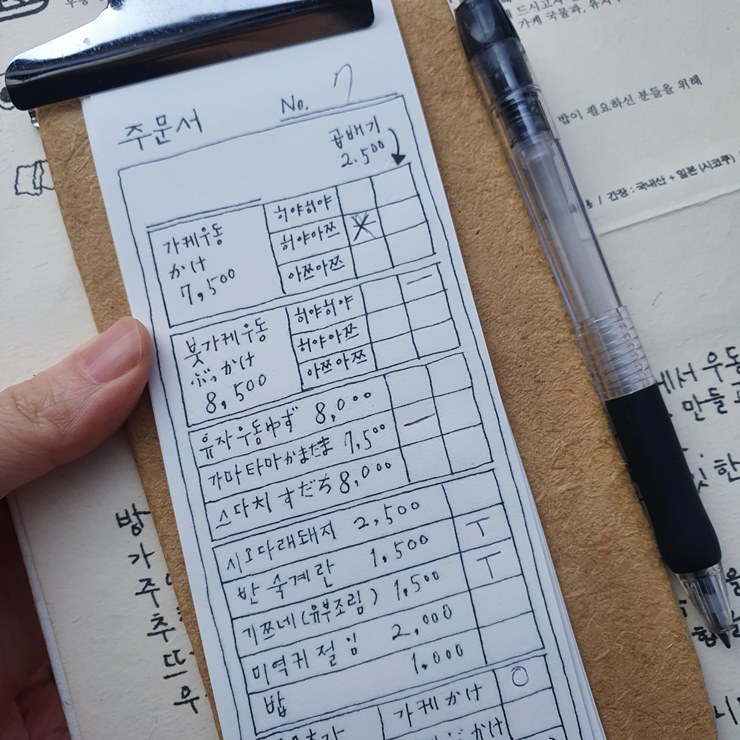 주문서 No. 7
곱배기
2.500
가케우동
かけ
7,500
히야히야
히야아쯔
아쯔아쯔
붓가케우동
ぶっかけ
8,500
히야히야
히야아쯔
아쯔아쯔
유자우동ゆず 8,000
가마타마かまたま 7,500
스다치すだち 8,000
시로다래돼지 2,500
반숙계란 1,500
기쯔네(유부조림) 1,500
미역귀절임 2,000
밥 1,000
가케かけ
드시고
가케 국물과, 유자
밥이 필요하신 분들을 위해
/ 간장 : 국내산 + 일본 (시코쿠)
에서 우동
만들고
한
을
방
가
주
추
뜨
우